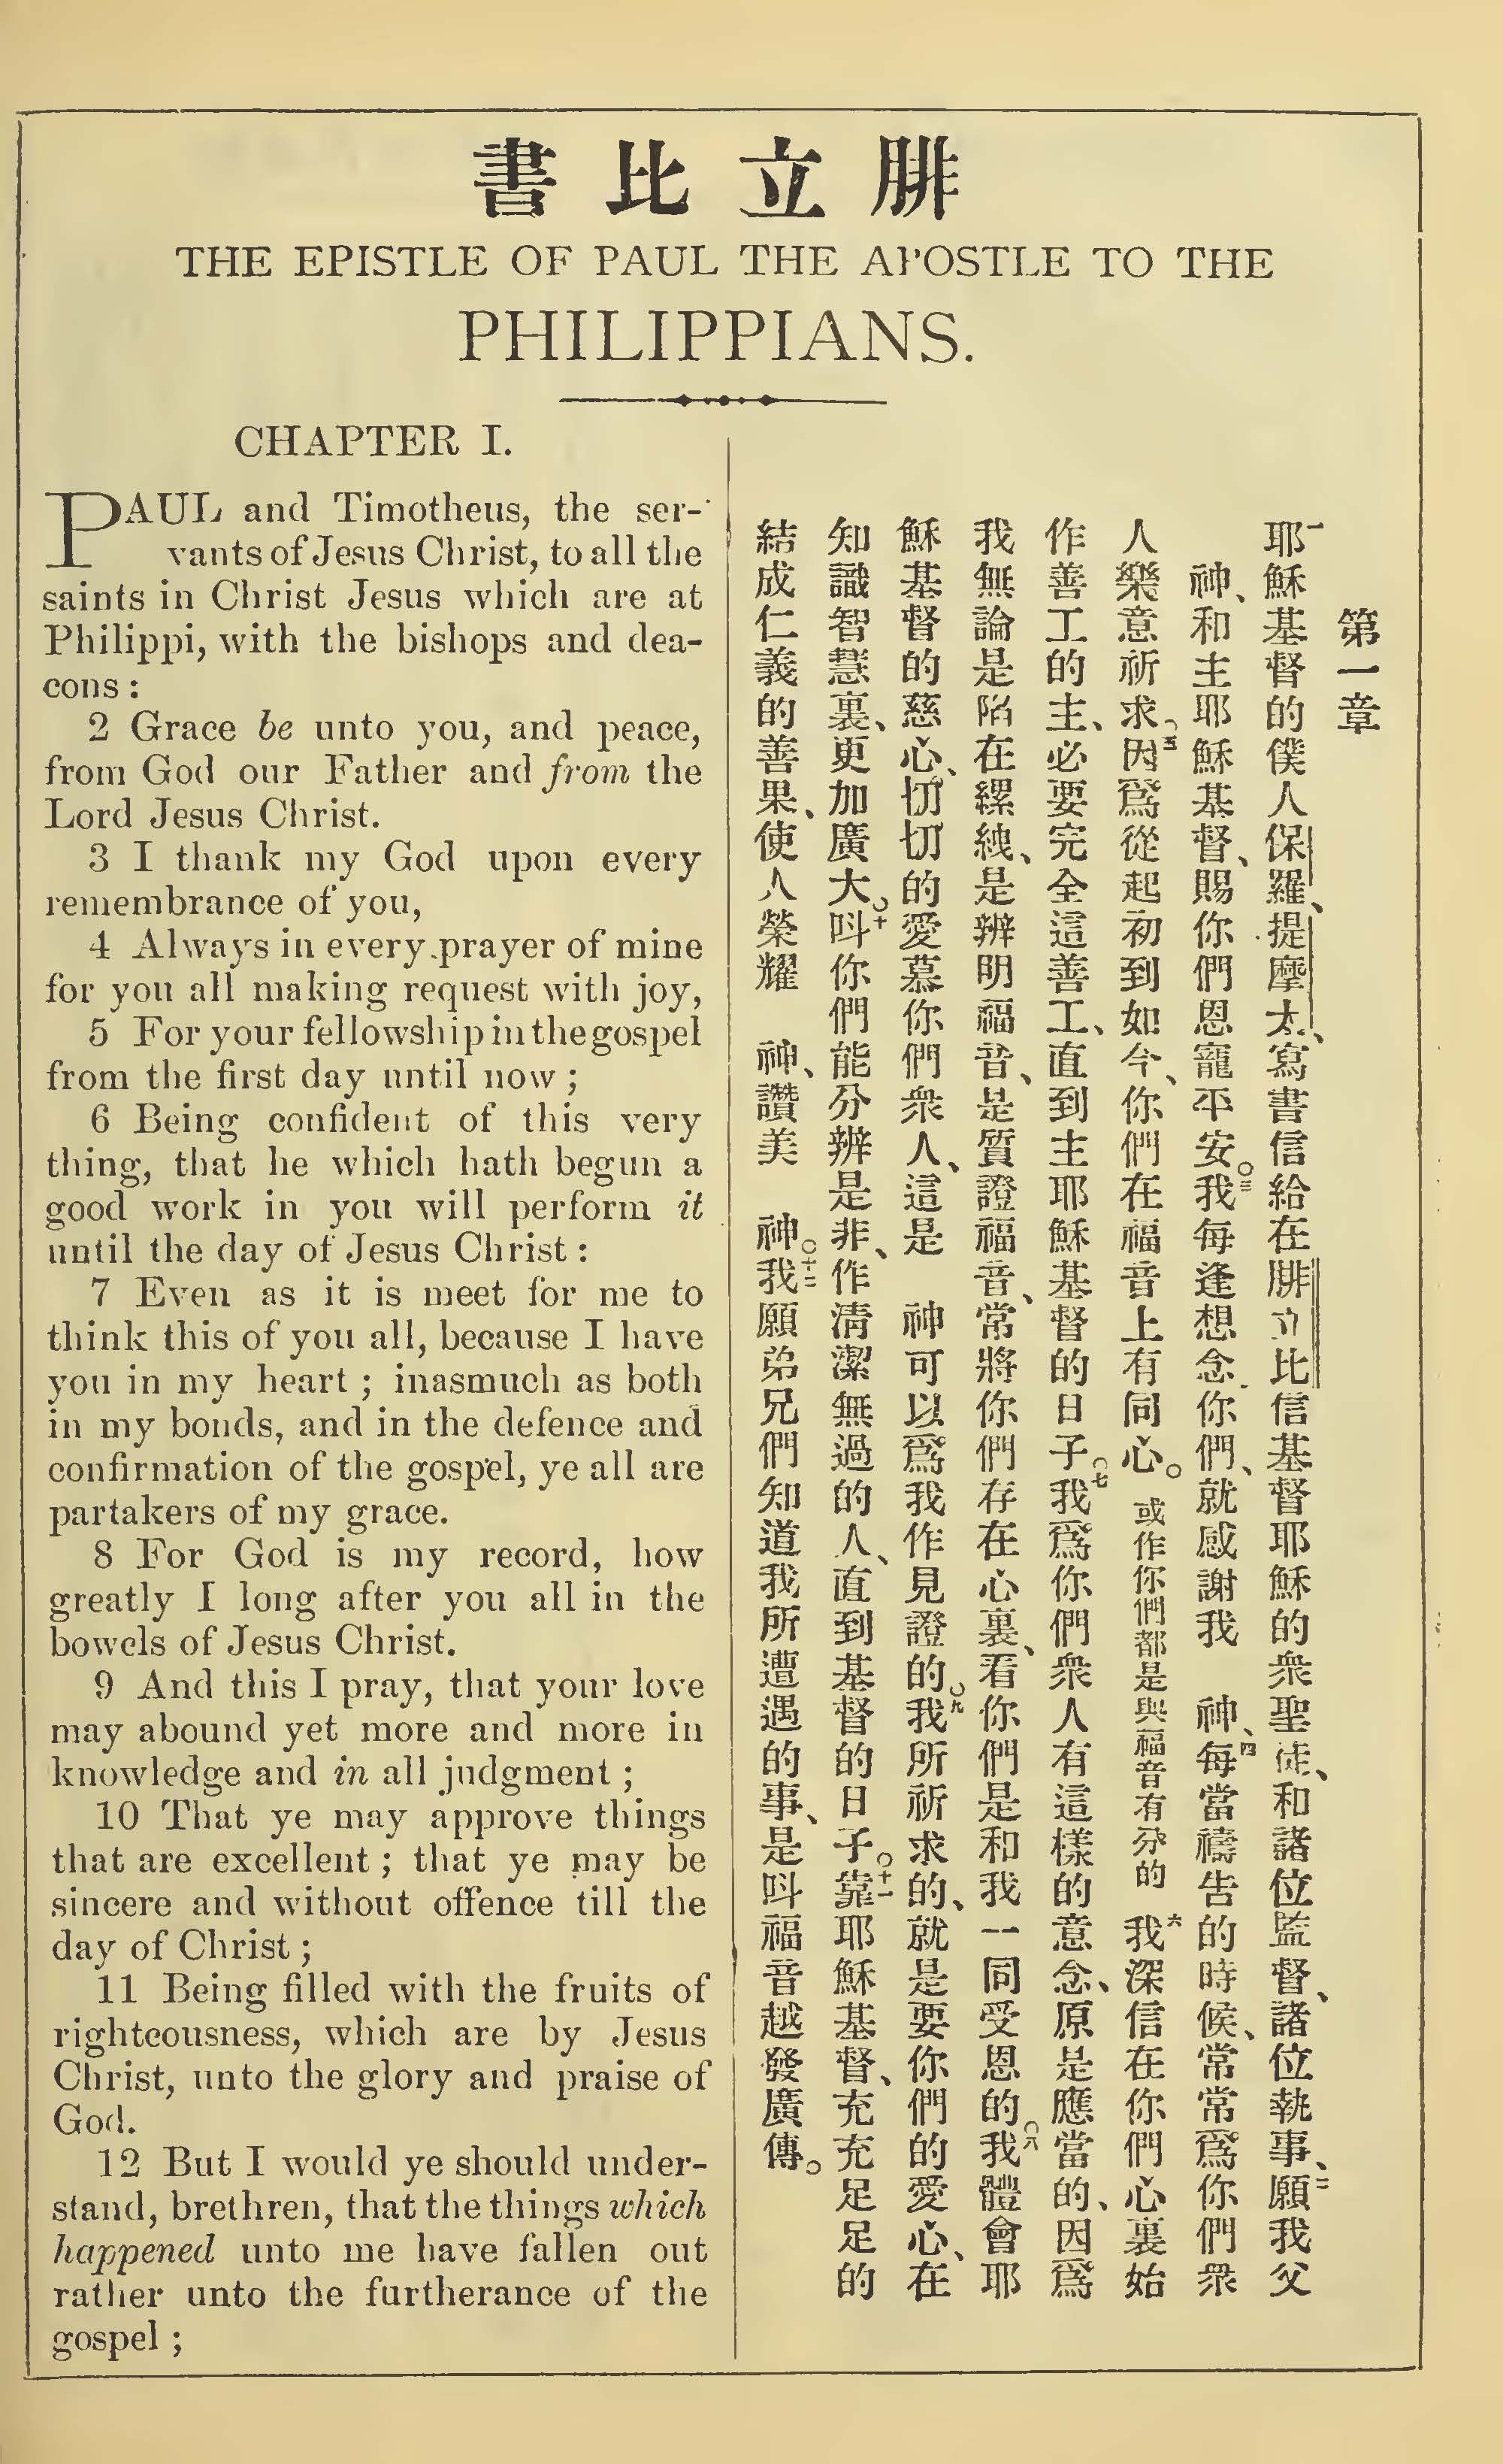 書比立腓
THE EPISTLE OF PAUL THE APOSTLE TO THE
PHILIPPIANS.
CHAPTER I.
PAUL and Timotheus, the ser-
vants of Jesus Christ, to all the
saints in Christ Jesus which are at
Philippi, with the bishops and dea-
cons :
2 Grace be unto you, and peace,
from God our Father and from the
Lord Jesus Christ.
3 I thank my God upon every
remembrance of you,
4 Always in every prayer of mine
for you all making request with joy,
5 For your fellowship in the gospel
from the first day until now ;
6 Being confident of this very
thing, that he which hath begun a
good work in you will perform it
until the day of Jesus Christ :
7 Even as it is meet for me to
think this of you all, because I have
you in my heart ; inasmuch as both
in my bonds, and in the defence and
confirmation of the gospel, ye all are
partakers of my grace.
8 For God is my record, how
greatly I long after you all in the
bowels of Jesus Christ.
9 And this I pray, that your love
may abound yet more and more in
knowledge and in all judgment ;
10 That ye may approve things
that are excellent ; that ye may be
sincere and without offence till the
day of Christ ;
11 Being filled with the fruits of
righteousness, which are by Jesus
Christ, unto the glory and praise of
God.
12 But I would ye should under-
stand, brethren, that the things which
happened unto me have fallen out
rather unto the furtherance of the
gospel ;
第一章
一耶穌基督的僕人保羅、提摩太、寫書信給在腓立比信基督耶穌的衆聖徒、和諸位監督、諸位執事、二願我父
神、和主耶穌基督、賜你們恩寵平安。三我每逢想念你們、就感謝我 神、四每當禱告的時候、常常爲你們衆
人樂意祈求。五因爲從起初到如今、你們在福音上有同心。或作你們都是與福音有分的 六我深信在你們心裏始
作善工的主、必要完全這善工、直到主耶穌基督的日子。七我爲你們衆人有這樣的意念、原是應當的、因爲
我無論是陷在縲絏、是辨明福音、是質證福音、常將你們存在心裏、看你們是和我一同受恩的。八我體會耶
穌基督的慈心、切切的愛慕你們衆人、這是 神可以爲我作見證的。九我所祈求的、就是要你們的愛心、在
知識智慧裏、更加廣大。十呌你們能分辨是非、作淸潔無過的人、直到基督的日子。十一靠耶穌基督、充充足足的
結成仁義的善果、使人榮耀 神、讚美 神。十二我願弟兄們知道我所遭遇的事、是呌福音越發廣傳。